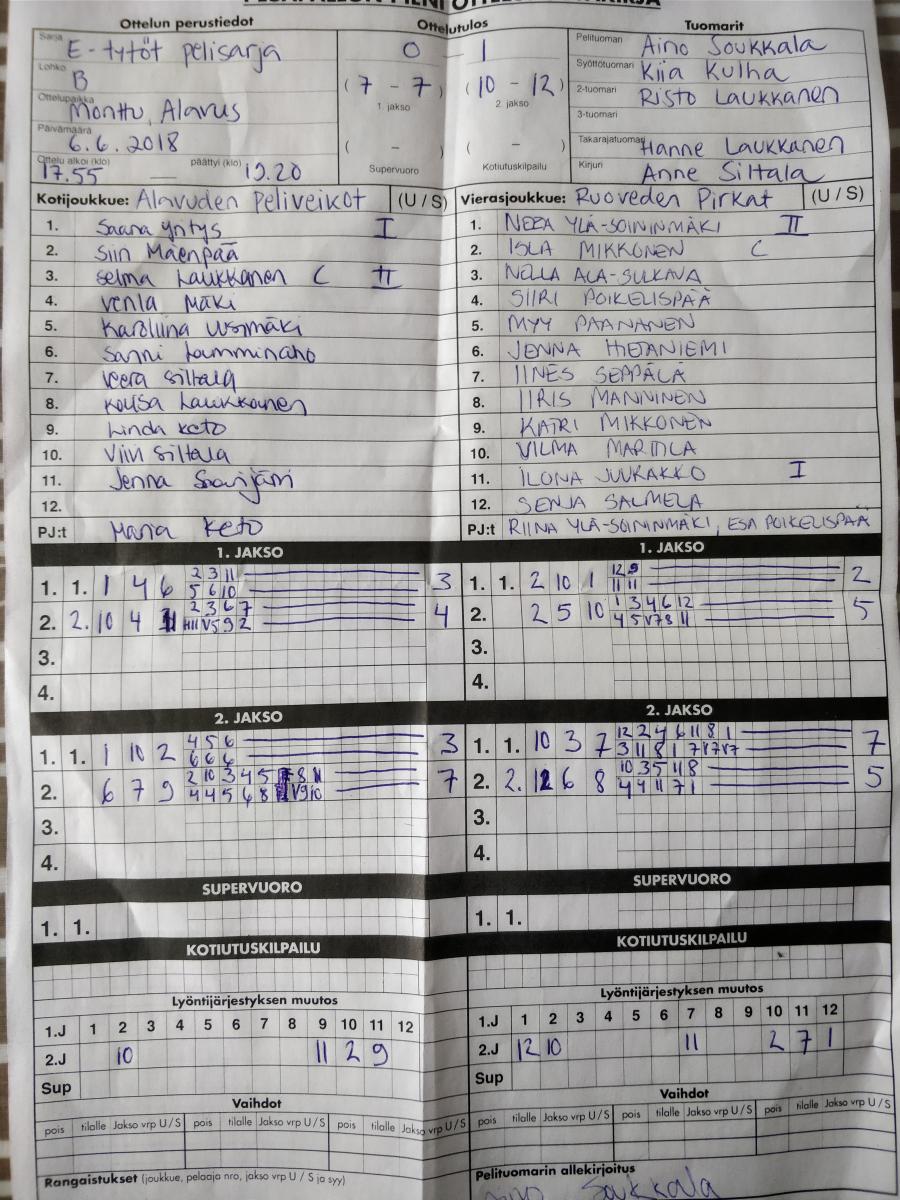 Ottelun perustiedot Ottelutulos Tuomarit
Sarja E-tytöt pelisarja 0 - 1 Pelituomari Aino Soukkala
Lohko B (7 - 7) (10 - 12) Syöttötuomari Kiia Kulha
1. jakso 2. jakso 2-tuomari Risto Laukkanen
Ottelupaikka Monttu, Alavus 3-tuomari
Päivämäärä 6.6.2018 ( - ) ( - ) Takarajatuomari Hanne Laukkanen
Ottelu alkoi (klo) 17.55 päättyi (klo) 19.20 Supervuoro Kotiutuskilpailu Kirjuri Anne Siltala
Kotijoukkue: Alavuden Peliveikot (U / S) Vierasjoukkue: Ruoveden Pirkat (U / S)
1. Saana Yritys I 1. NEEA YLÄ-SOININMÄKI II
2. Siin Mäenpää 2. ISLA MIKKONEN C
3. Selma Laukkanen C II 3. NELLA ALA-SULKAVA
4. Venla Mäki 4. SIIRI POIKELISPÄÄ
5. Karoliina Uusmäki 5. MYY PAANANEN
6. Sanni Lamminaho 6. JENNA HIETANIEMI
7. Veera Siltala 7. IINES SEPPÄLÄ
8. Laukkanen 8. IIRIS MANNINEN
9. Linda Keto 9. KATRI MIKKONEN
10. Viivi Siltala 10. VILMA MARTTILA
11. Jenna Saarijärvi 11. ILONA JUURAKKO I
12. 12. SENJA SALMELA
PJ:t Maria Keto PJ:t RIINA YLÄ-SOININMÄKI, ESA POIKELISPÄÄ
1. JAKSO 1. JAKSO
1. 1. 1 4 6 2 3 11 3 1. 1. 2 10 1 12 9 2
5 6 10 11 11
2. 2. 10 4 11 2 3 6 7 4 2. 2 5 10 1 3 4 6 12 5
V5 9 2 4 5 V7 8 11
3. 3.
4. 4.
2. JAKSO 2. JAKSO
1. 1. 1 10 2 4 5 6 3 1. 1. 10 3 7 12 2 4 6 11 8 1 7
6 6 6 3 11 8 1 7 V7 V7
2. 6 7 9 2 10 3 4 5 8 11 7 2. 2. 12 6 8 10 3 5 11 8 5
4 4 5 6 8 V9 10 4 4 11 7 1
3. 3.
4. 4.
SUPERVUORO SUPERVUORO
1. 1. 1. 1.
KOTIUTUSKILPAILU KOTIUTUSKILPAILU
Lyöntijärjestyksen muutos Lyöntijärjestyksen muutos
1.J 1 2 3 4 5 6 7 8 9 10 11 12 1.J 1 2 3 4 5 6 7 8 9 10 11 12
2.J 10 11 2 9 2.J 12 10 11 2 7 1
Sup Sup
Vaihdot Vaihdot
pois tilalle Jakso vrp U / S pois tilalle Jakso vrp U / S pois tilalle Jakso vrp U / S pois tilalle Jakso vrp U / S pois tilalle Jakso vrp U / S pois tilalle Jakso vrp U / S
Rangaistukset (joukkue, pelaaja nro, jakso vrp U / S ja syy) Pelituomarin allekirjoitus
Soukkala